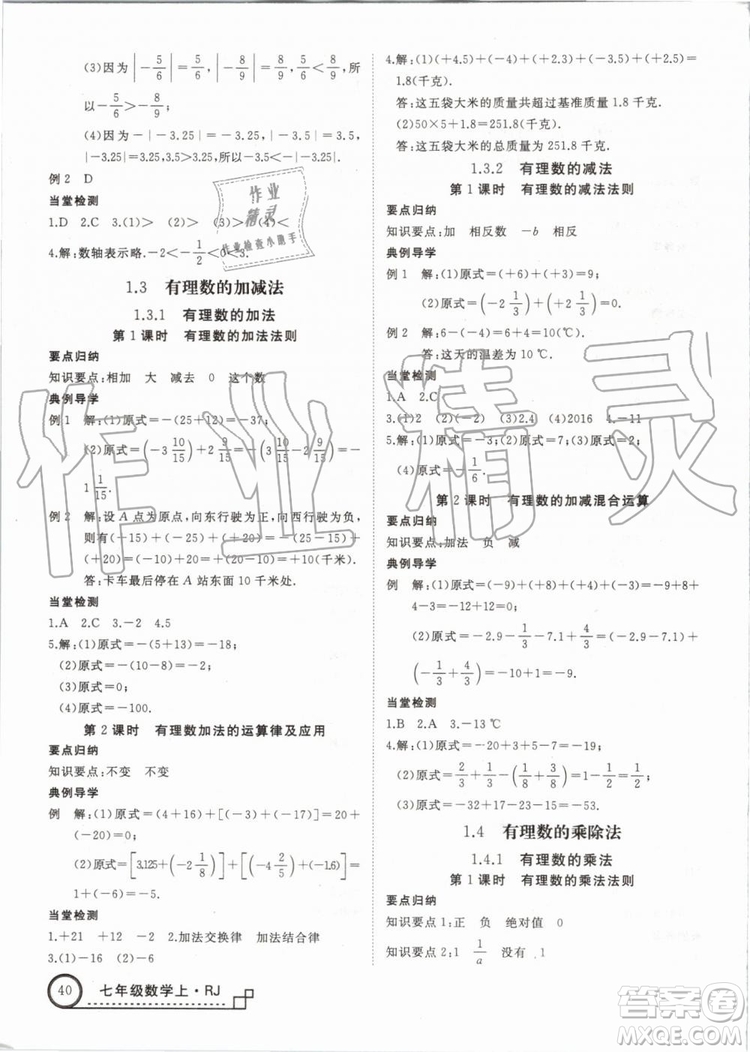 (3)因为|−5/6|=5/6,|−8/9|=8/9,5/6<8/9,所
以−5/6>−8/9;
(4)因为−|−3.25|=−3.25,−|−3.5|=3.5,
|−3.25|>3.25,所以−|−3.25|<|−3.25|.
例2 D
当堂检测
1.D 2.C 3.(1)> (2)> (3)< (4)<
4.解:数轴表示略.−2<−1/2<0<3.
1.3 有理数的加减法
1.3.1 有理数的加法
第1课时 有理数的加法法则
要点归纳
知识要点:相加 大 减去 0 这个数
典例导学
例1 解:(1)原式=−(25+12)=−37;
(2)原式=(−3 10/15)+2 9/15=−(3 10/15−2 9/15)=−
1 1/15.
例2 解:设A点为原点,向东行驶为正,向西行驶为负,
则有(−15)+(−25)+(+20)+(−10)+
(+20)=(−15)+(−25)=−10(千米).
答:卡车最后停在A站东面10千米处.
当堂检测
1.A 2.C 3.−2 4.5
5.解:(1)原式=−(5+13)=−18;
(2)原式=−(10−8)=−2;
(3)原式=0;
(4)原式=−8.
第2课时 有理数加法的运算律及应用
要点归纳
知识要点:不变 不变
典例导学
例 解:(1)原式=(4+16)+[(−3)+(−17)]=20+
(−20)=0;
(2)原式=[3.125+(−2 1/8)]+[(−4 2/5)+(−1.6)]=
1+(−6)=−5.
当堂检测
1.+21 +12 −2 2.加法交换律 加法结合律
3.(1)−16 (2)−5
4.解:(1)(+4.5)+(−4)+(+2.3)+(−3.5)+(+2.5)=
1.8(千克).
答:这五袋大米的质量共超过基准质量1.8千克.
(2)50×5+1.8=251.8(千克).
答:这五袋大米的总质量为251.8千克.
1.3.2 有理数的减法
第1课时 有理数的减法法则
要点归纳
知识要点:加 相反数 −b 相反
典例导学
例1 解:(1)原式=(+6)+(+3)=9;
(2)原式=(−2 1/3)+(+2 1/3)=0.
例2 解:6−(−4)=6+4=10(℃).
答:这天的温差为10℃.
当堂检测
1.A 2.C
3.(1)2 (2)(−2) (3)2.4 (4)2016 4.−11
5.解:(1)原式=−10;(2)原式=7;(3)原式=2;
(4)原式=−1/6.
第2课时 有理数的加减混合运算
要点归纳
知识要点:加法 负 减
典例导学
例 解:(1)原式=(−9)+(+8)+(−3)=−9+8+
4−3=−12+12=0;
(2)原式=−2.9−1/3−7.1+4/3=−2.9−7.1+
(−1/3+4/3)=−10+1=−9.
当堂检测
1.B 2.A 3.−13℃
4.解:(1)原式=−20+3+5−7=−19;
(2)原式=1 2/3+2 1/3+(−3 1/2−1)=4−4 1/2=−1/2;
(3)原式=−32+17−23−15=−53.
1.4 有理数的乘除法
1.4.1 有理数的乘法
第1课时 有理数的乘法法则
要点归纳
知识要点1:正 负 绝对值 0
知识要点2:1 1/a 没有 1
40 七年级数学上·RJ
作业
精灵
作业检查小助手
作业精灵
答案圈
MXQE.COM